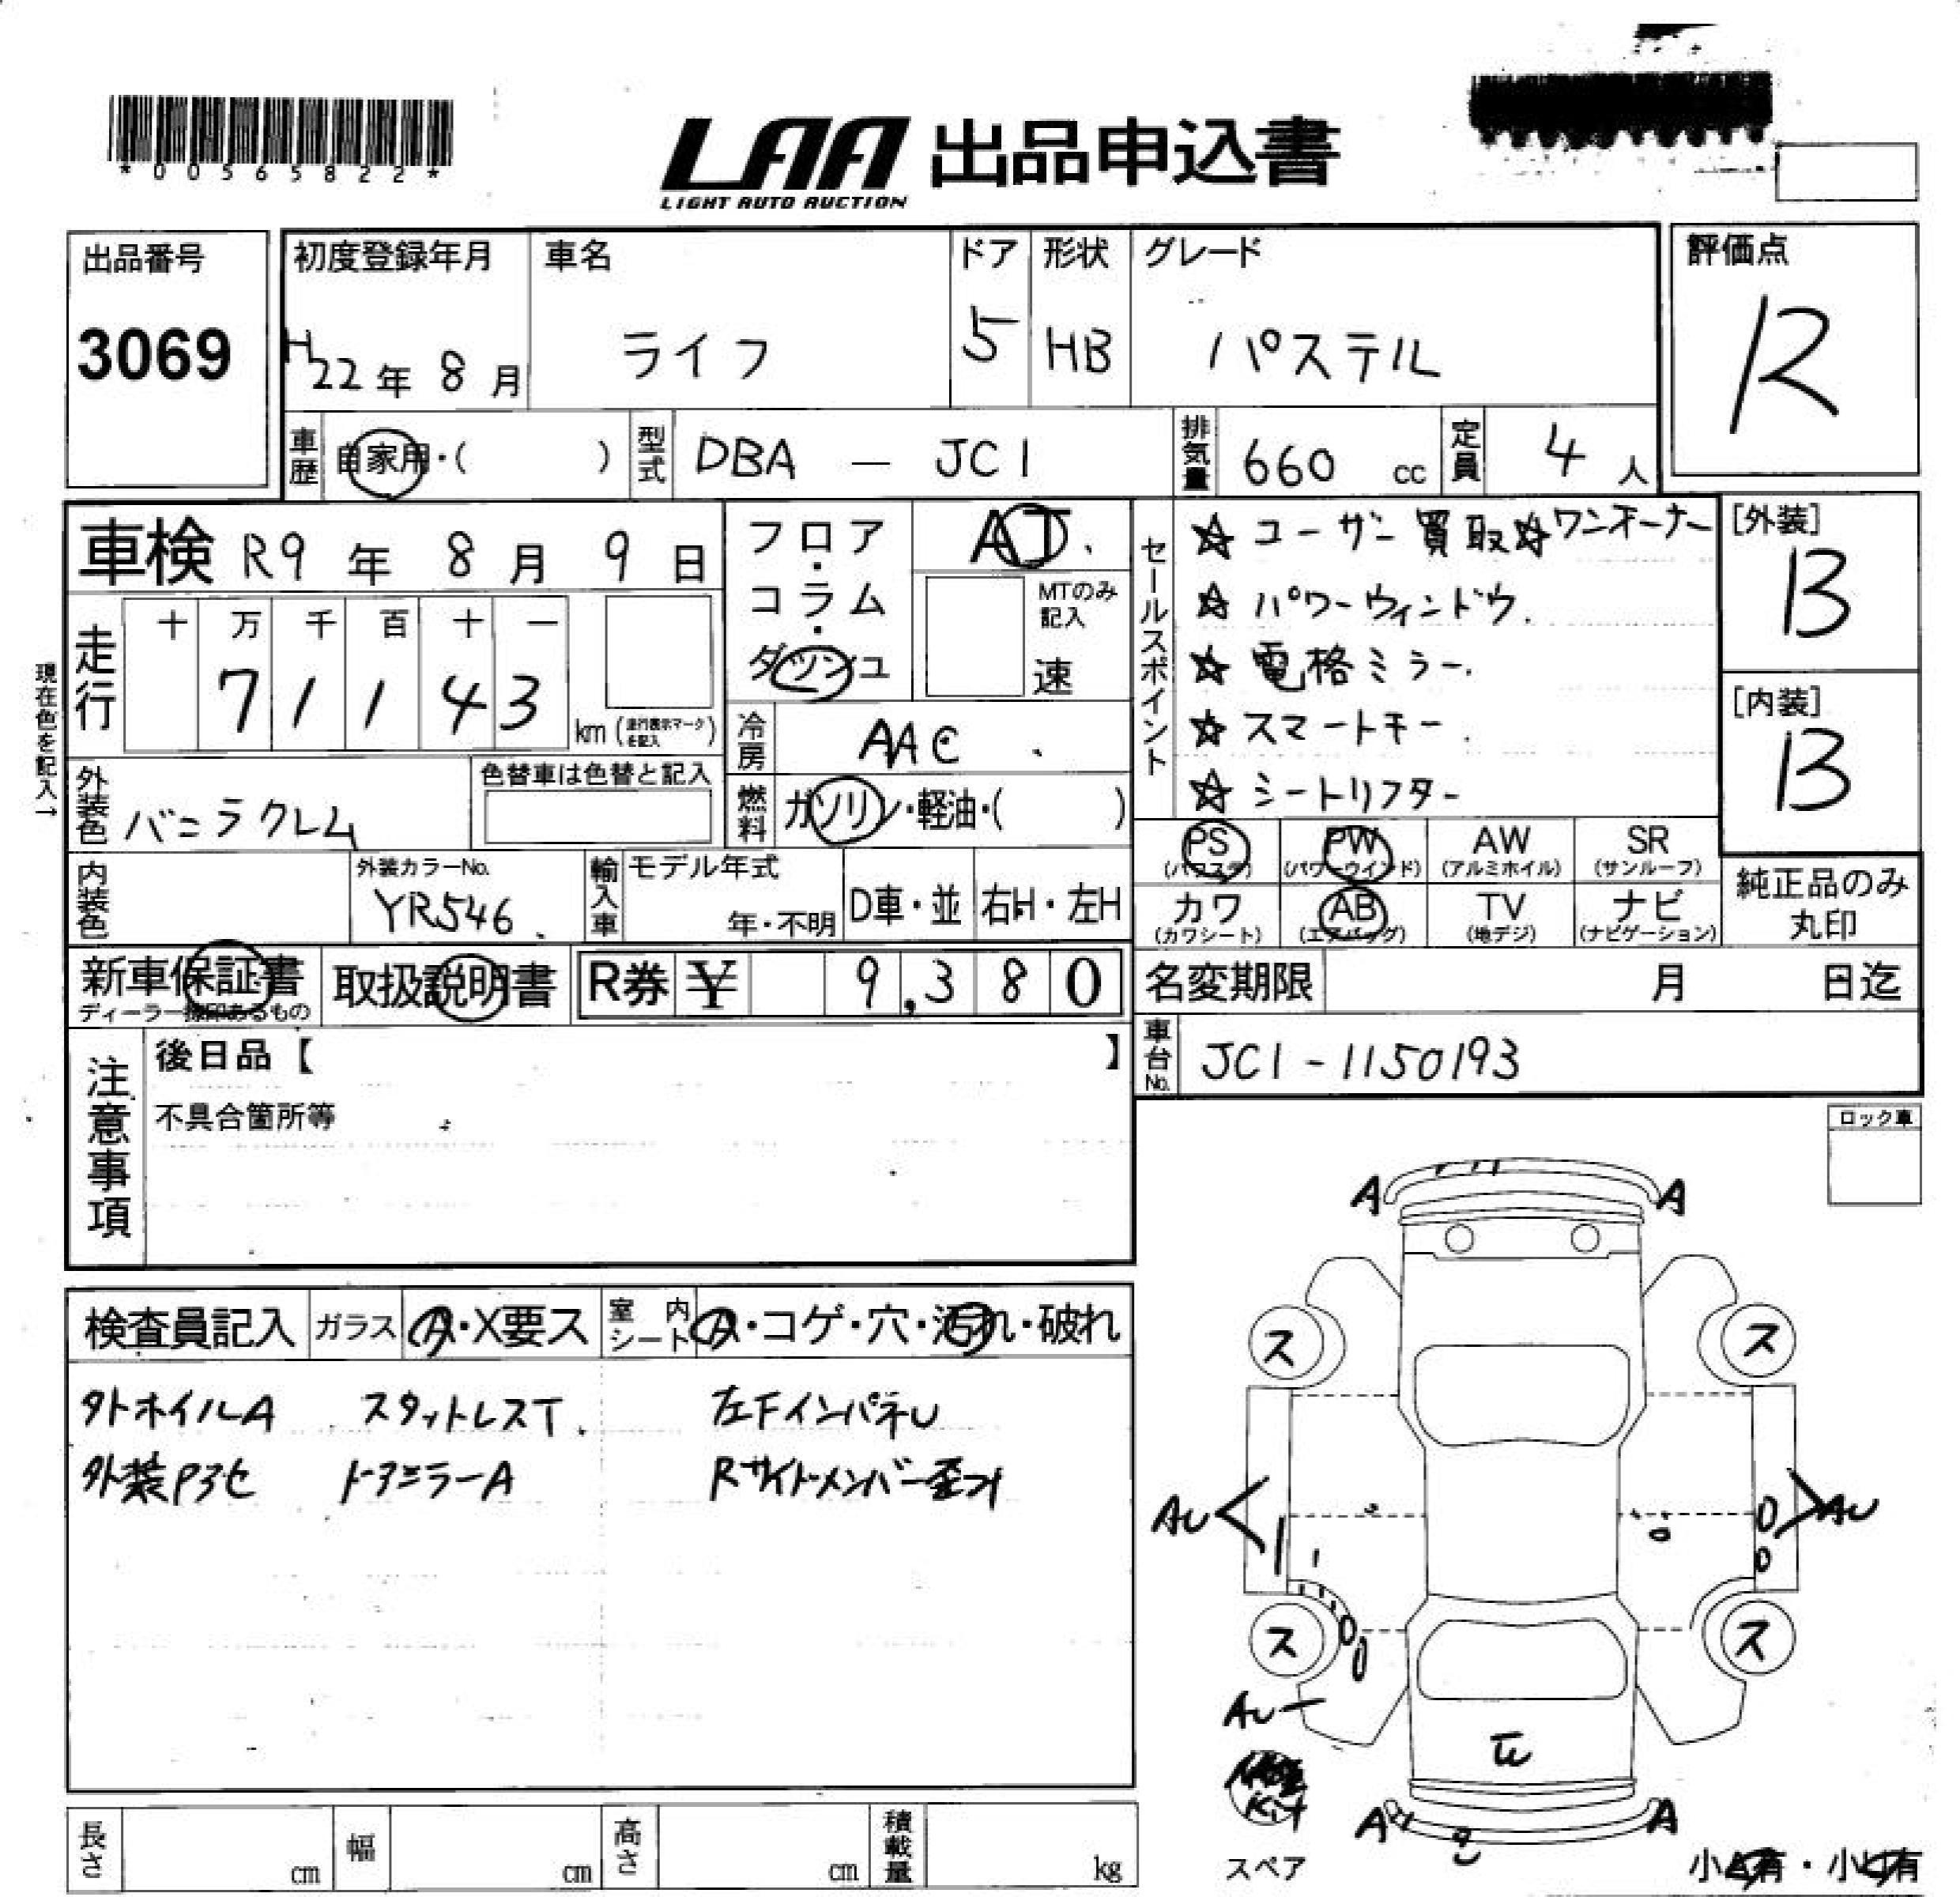 *00565822*
LAA 出品申込書
LIGHT AUTO AUCTION
出品番号
3069
初度登録年月
H22年 8月
車名
ライフ
ドア
5
形状
HB
グレード
パステル
評価点
R
車歴
自家用・( )
型式
DBA － JC1
排気量
660 cc
定員
4 人
車検 R9 年 8 月 9 日
現在色を記入→
走行
十 万 千 百 十 一
7 1 1 4 3
km
フロア・コラム・ダッシュ
AT
MTのみ記入
速
冷房
AAC
燃料
ガソリン・軽油・( )
外装色
バニラクレム
色替車は色替と記入
内装色
外装カラーNo.
YR546
輸入車
モデル年式
年・不明
D車・並
右H・左H
セールスポイント
☆ ユーザー買取☆ワンオーナー
☆ パワーウィンドウ.
☆ 電格ミラー.
☆ スマートキー.
☆ シートリフター
[外装]
B
[内装]
B
PS
(パワステ)
PW
(パワーウインド)
AW
(アルミホイル)
SR
(サンルーフ)
カワ
(カワシート)
AB
(エアバッグ)
TV
(地デジ)
ナビ
(ナビゲーション)
純正品のみ
丸印
新車保証書
取扱説明書
R券 ¥ 9,380
名変期限 月 日迄
車台No.
JC1-1150193
注意事項
後日品【 】
不具合箇所等
ロック車
検査員記入
ガラス
A・X要ス
室内シート
A・コゲ・穴・汚れ・破れ
タトホイルA スタットレスT. 左FインパネU
外装P3セ ドアミラーA Rサイドメンバー歪み
A A
ス ス
AU AU
ス ス
AU
Kit
スペア
A A
長さ cm
幅 cm
高さ cm
積載量 kg